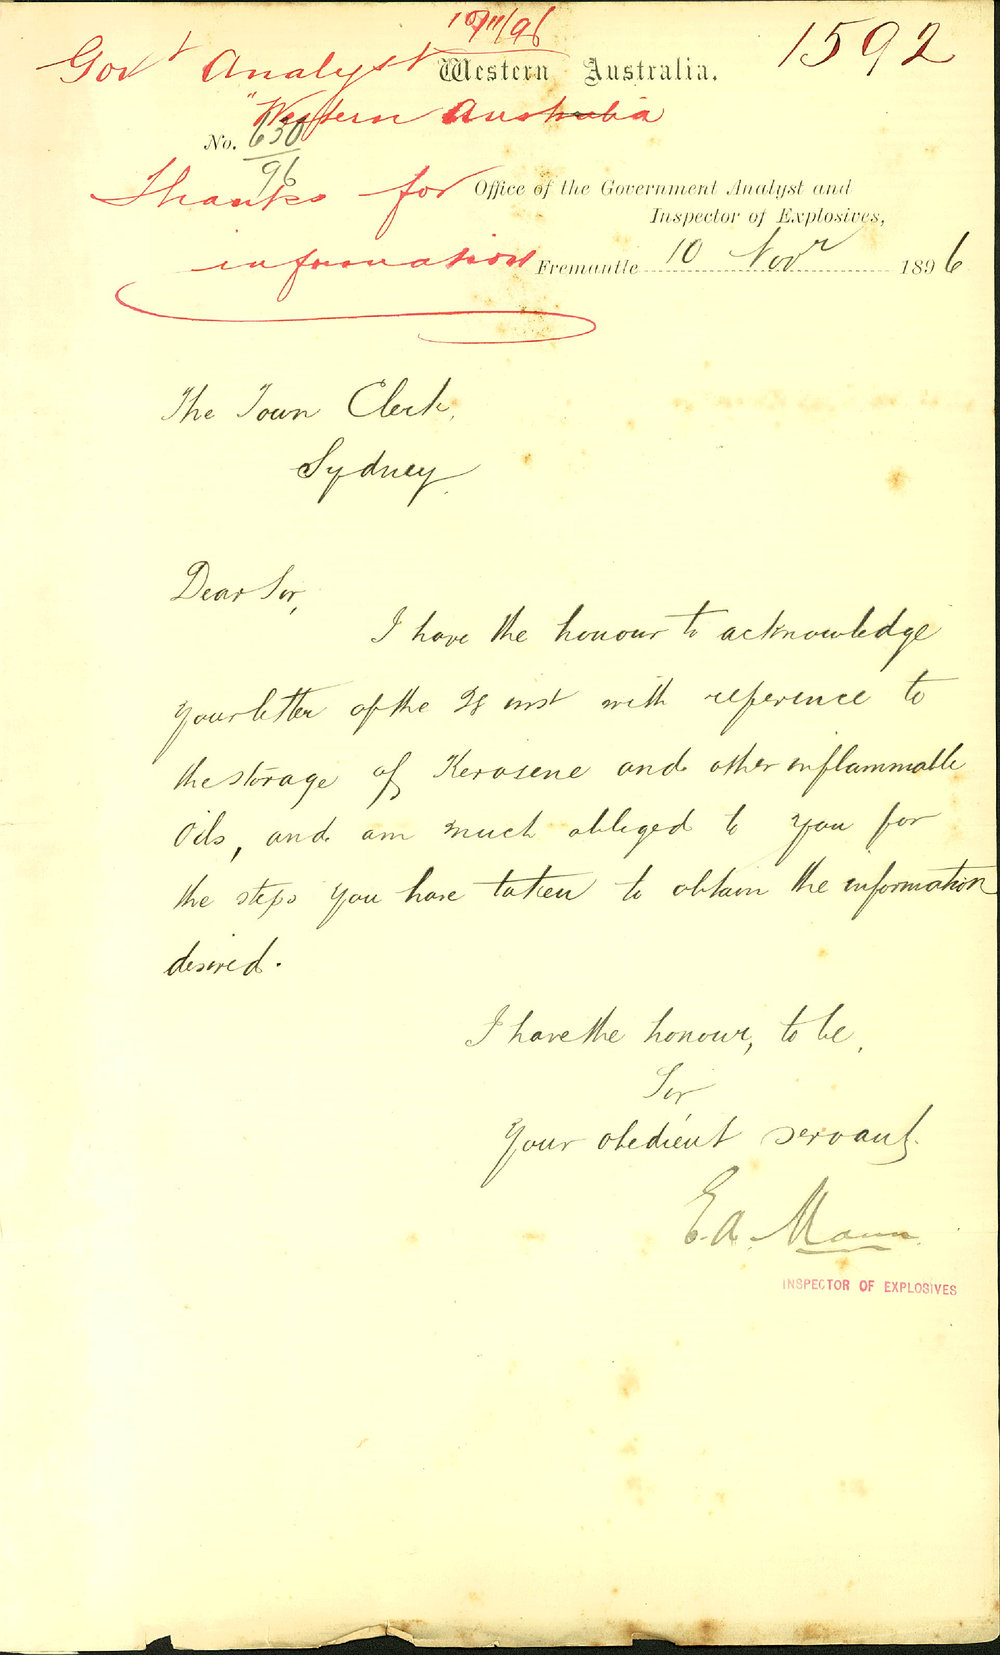 10/11/96
1592
Govt Analyst
Western Australia.
"Western Australia
No. 630/96
Thanks for
Office of the Government Analyst and
Inspector of Explosives,
information
Fremantle 10 Novr 1896
The Town Clerk,
Sydney.
Dear Sir,
I have the honour to acknowledge
your letter of the inst with reference to
the storage of Kerosene and other inflammable
Oils, and am much obliged to you for
the steps you have taken to obtain the information
desired.
I have the honour, to be,
Sir
Your obedient servant.
E.A. Mann.
INSPECTOR OF EXPLOSIVES